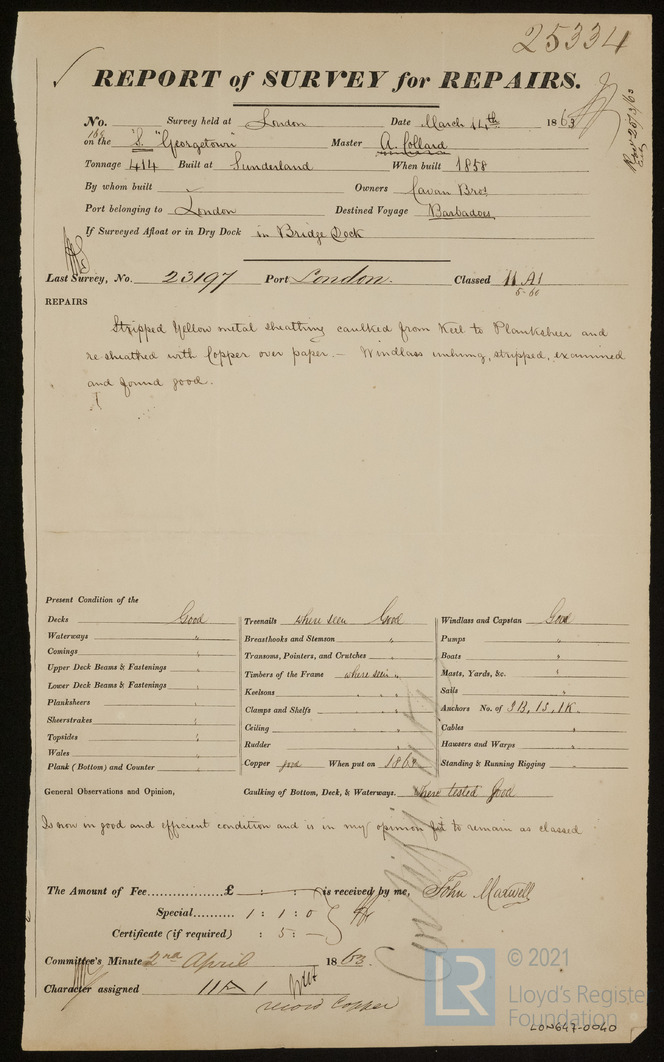 25334
REPORT of SURVEY for REPAIRS.
No. Survey held at London Date March 14th 1863
on the S. "Georgetown" Master A. Pollard
Tonnage 414 Built at Sunderland When built 1858
By whom built Owners Cavan Bros
Port belonging to London Destined Voyage Barbadoes
If Surveyed Afloat or in Dry Dock in Bridge Dock
Last Survey, No. 23197 Port London. Classed 11 A1
5-60
REPAIRS
Stripped Yellow metal sheathing caulked from Keel to Planksheer and
re-sheathed with Copper over paper. – Windlass unhung, stripped, examined
and found good.
Present Condition of the
Decks Good
Waterways "
Comings "
Upper Deck Beams & Fastenings "
Lower Deck Beams & Fastenings "
Planksheers "
Sheerstrakes "
Topsides "
Wales "
Plank (Bottom) and Counter "
Treenails where seen Good
Breasthooks and Stemson "
Transoms, Pointers, and Crutches "
Timbers of the Frame where seen "
Keelsons "
Clamps and Shelfs "
Ceiling "
Rudder "
Copper good When put on 1863
Windlass and Capstan Good
Pumps "
Boats "
Masts, Yards, &c. "
Sails "
Anchors No. of 3B, 1S, 1K.
Cables "
Hawsers and Warps "
Standing & Running Rigging "
General Observations and Opinion, Caulking of Bottom, Deck, & Waterways. where tested Good
Is now in good and efficient condition and is in my opinion fit to remain as classed
The Amount of Fee............£ : : is received by me, John Maxwell
Special.......... 1 : 1 : 0
Certificate (if required) : 5 :
Committee's Minute 2nd April 1863.
Character assigned 11 A 1
record Copper
© 2021
Lloyd's Register
Foundation
LON647-0040